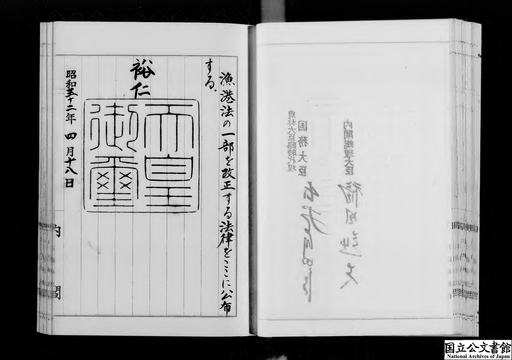 漁港法の一部を改正する法律をここに公布
する。
裕仁
天皇御璽
昭和五十二年四月十八日
内閣
内閣総理大臣
国務大臣
農林大臣臨時代理
国立公文書館
National Archives of Japan